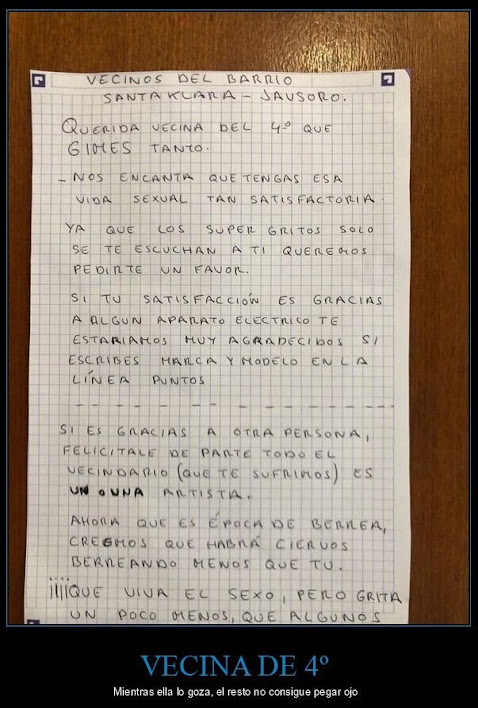 VECINOS DEL BARRIO
SANTAKLARA - JAUSORO.
QUERIDA VECINA DEL 4º QUE
GIMES TANTO.
- NOS ENCANTA QUE TENGAS ESA
VIDA SEXUAL TAN SATISFACTORIA.
YA QUE LOS SUPER GRITOS SOLO
SE TE ESCUCHAN A TI QUEREMOS
PEDIRTE UN FAVOR.
SI TU SATISFACCIÓN ES GRACIAS
A ALGUN APARATO ELECTRICO TE
ESTARIAMOS MUY AGRADECIDOS SI
ESCRIBES MARCA Y MODELO EN LA
LÍNEA PUNTOS
SI ES GRACIAS A OTRA PERSONA,
FELICITALE DE PARTE TODO EL
VECINDARIO (QUE TE SUFRIMOS) ES
UN O UNA ARTISTA.
AHORA QUE ES ÉPOCA DE BERREA,
CREEMOS QUE HABRÁ CIERVOS
BERREANDO MENOS QUE TU.
¡¡¡¡QUE VIVA EL SEXO, PERO GRITA
UN POCO MENOS, QUE ALGUNOS
VECINA DE 4º
Mientras ella lo goza, el resto no consigue pegar ojo